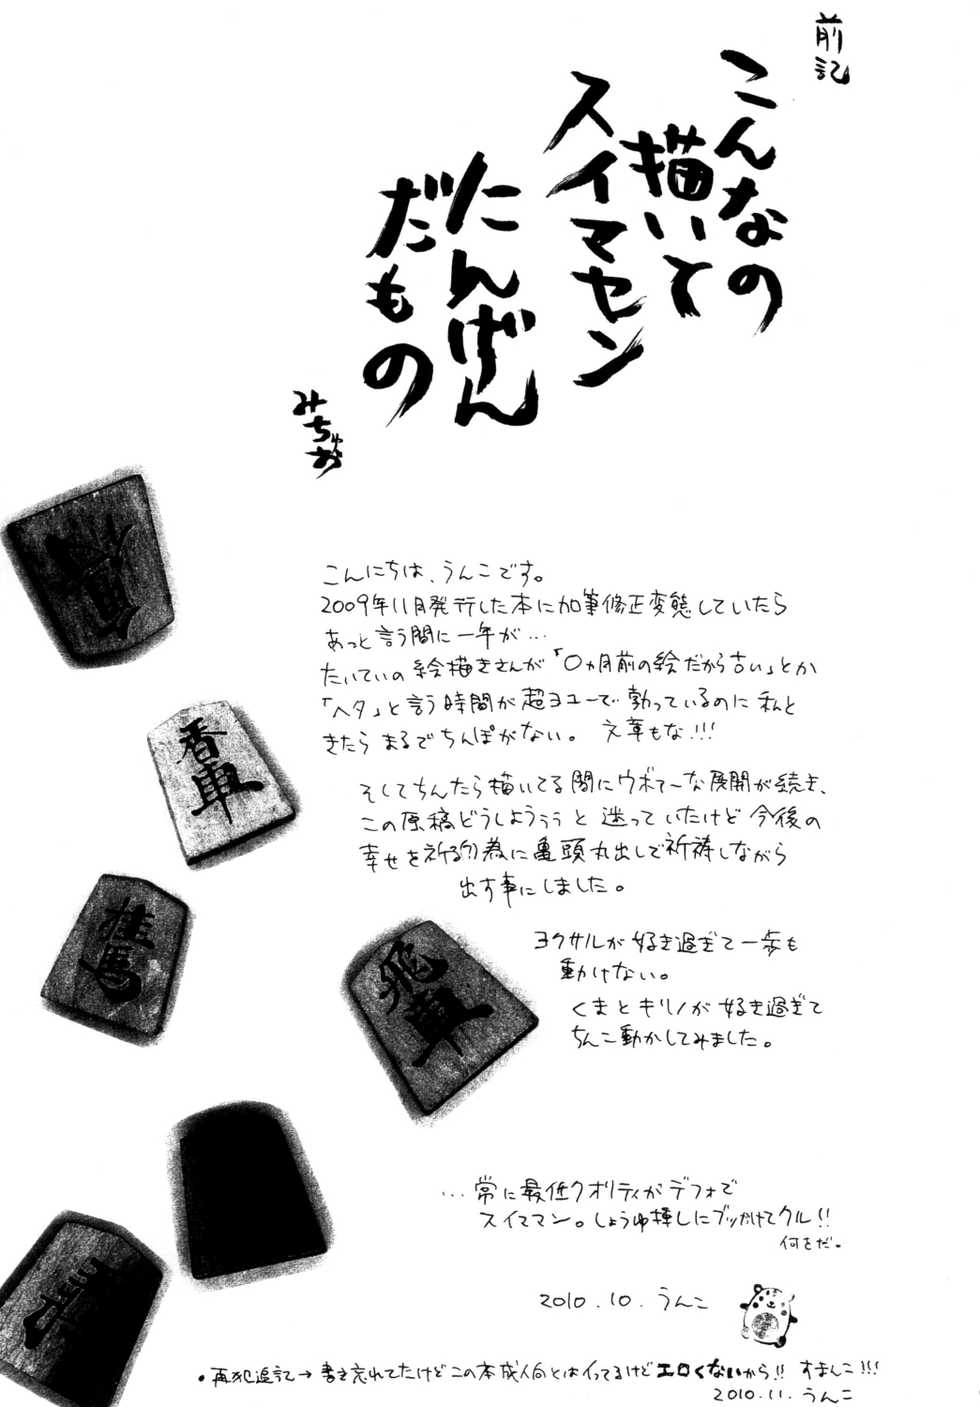 前記
こんなの
描いて
スイマセン
たんげん
だもの
みちゅお
香車
桂馬
飛車
こんにちは、うんこです。
2009年11月発行した本に加筆修正変態していたら
あっと言う間に一年が…
たいていの絵描きさんが「〇ヵ月前の絵だから古い」とか
「ヘタ」と言う時間が超ヨユーで勃っているのに私と
きたらまるでちんぽがない。 文章もな!!!
そしてちんたら描いてる間にウボァーな展開が続き、
この原稿どうしようぅぅと迷っていたけど今後の
幸せを祈る為に亀頭丸出しで祈祷しながら
出す事にしました。
ヨクサルが好き過ぎて一歩も
動かけない。
くまとキリノが好き過ぎて
ちんこ動かしてみました。
…常に最低クオリティがデフォで
スイママン。しょうゆ挿しにブッかけてクル!!
何をだ。
2010.10.うんこ
・再犯追記→書き忘れてたけどこの本成人向とはイってるけどエロくないから!! すまんこ!!!
2010.11.うんこ